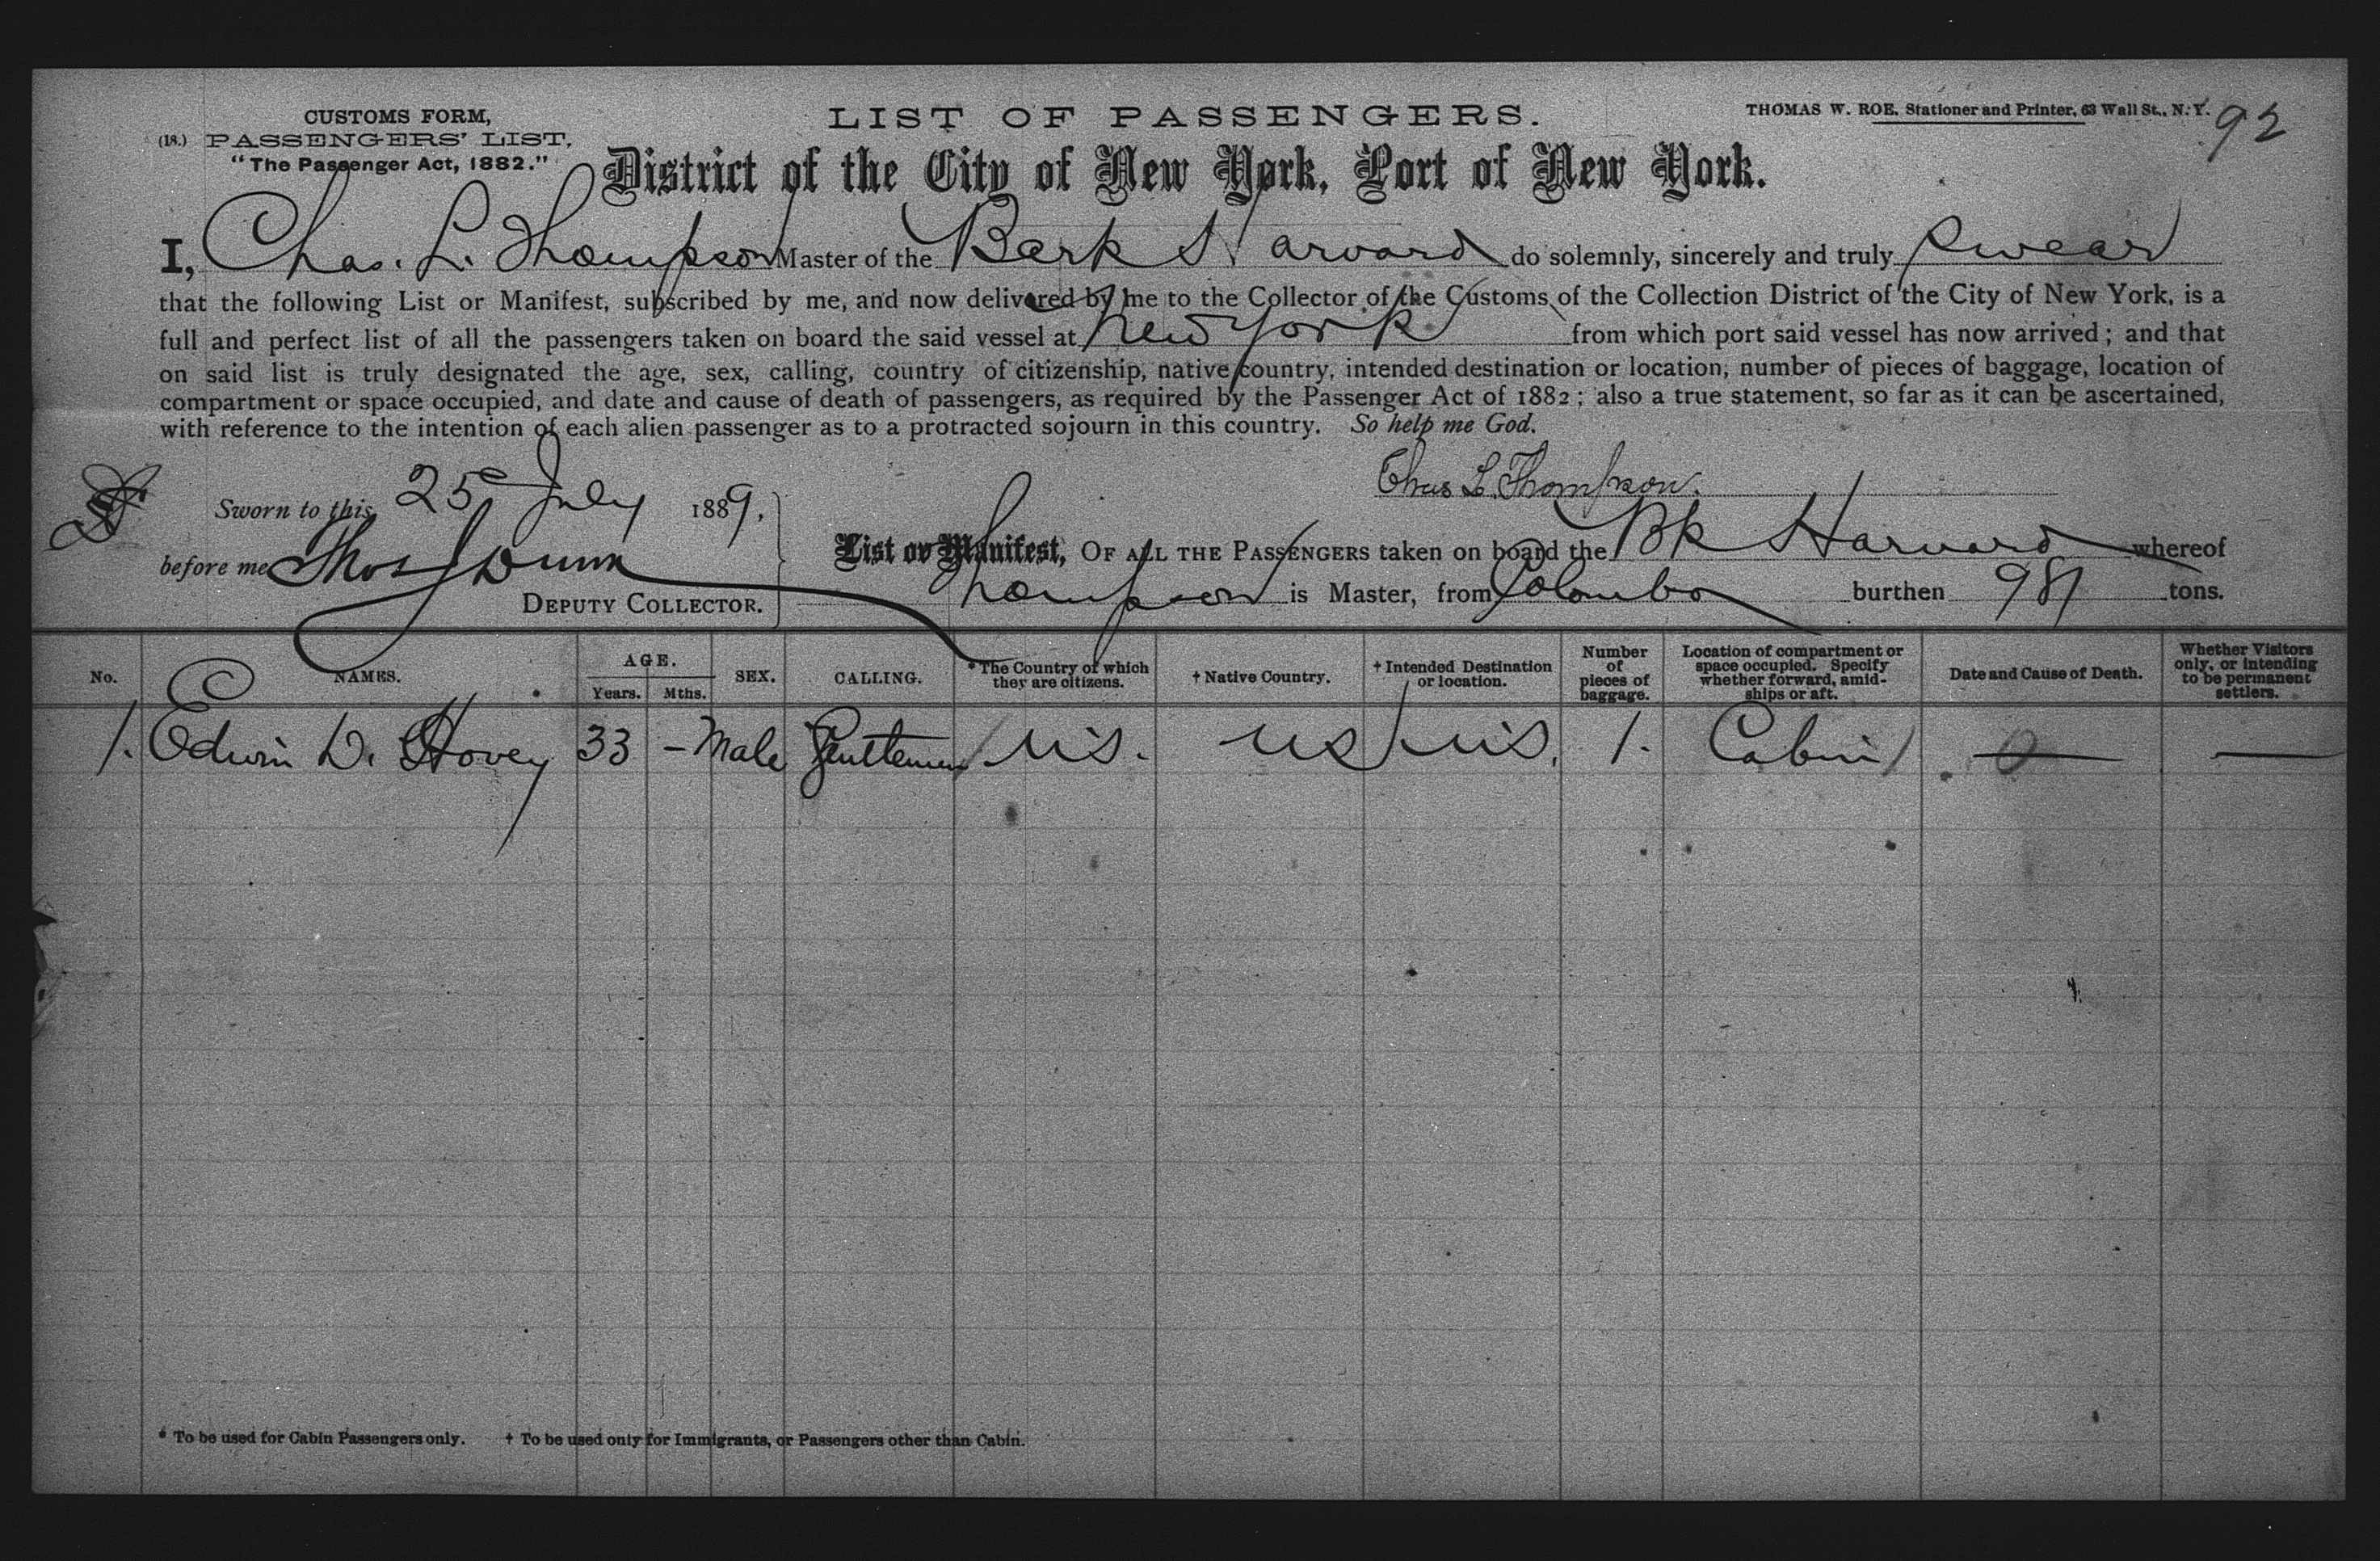 CUSTOMS FORM,
(18.) PASSENGERS' LIST,
"The Passenger Act, 1882."
LIST OF PASSENGERS.
THOMAS W. ROE, Stationer and Printer, 63 Wall St., N. Y.
92
District of the City of New York, Port of New York.
I, Chas. L. Thompson Master of the Bark Harvard do solemnly, sincerely and truly swear
that the following List or Manifest, subscribed by me, and now delivered by me to the Collector of the Customs of the Collection District of the City of New York, is a
full and perfect list of all the passengers taken on board the said vessel at New York from which port said vessel has now arrived; and that
on said list is truly designated the age, sex, calling, country of citizenship, native country, intended destination or location, number of pieces of baggage, location of
compartment or space occupied, and date and cause of death of passengers, as required by the Passenger Act of 1882; also a true statement, so far as it can be ascertained,
with reference to the intention of each alien passenger as to a protracted sojourn in this country. So help me God.
Chas L. Thompson.
Sworn to this 25 July 1889,
before me Thos J Dunn
DEPUTY COLLECTOR.
List or Manifest, OF ALL THE PASSENGERS taken on board the Bk Harvard whereof
Thompson is Master, from Colombo burthen 981 tons.
No. NAMES. AGE. Years. Mths. SEX. CALLING. * The Country of which they are citizens. † Native Country. † Intended Destination or location. Number of pieces of baggage. Location of compartment or space occupied. Specify whether forward, amidships or aft. Date and Cause of Death. Whether Visitors only, or intending to be permanent settlers.
1. Edwin D. Hovey 33 - Male Gentleman U.S. U S U.S. 1. Cabin 0 —
* To be used for Cabin Passengers only. † To be used only for Immigrants, or Passengers other than Cabin.